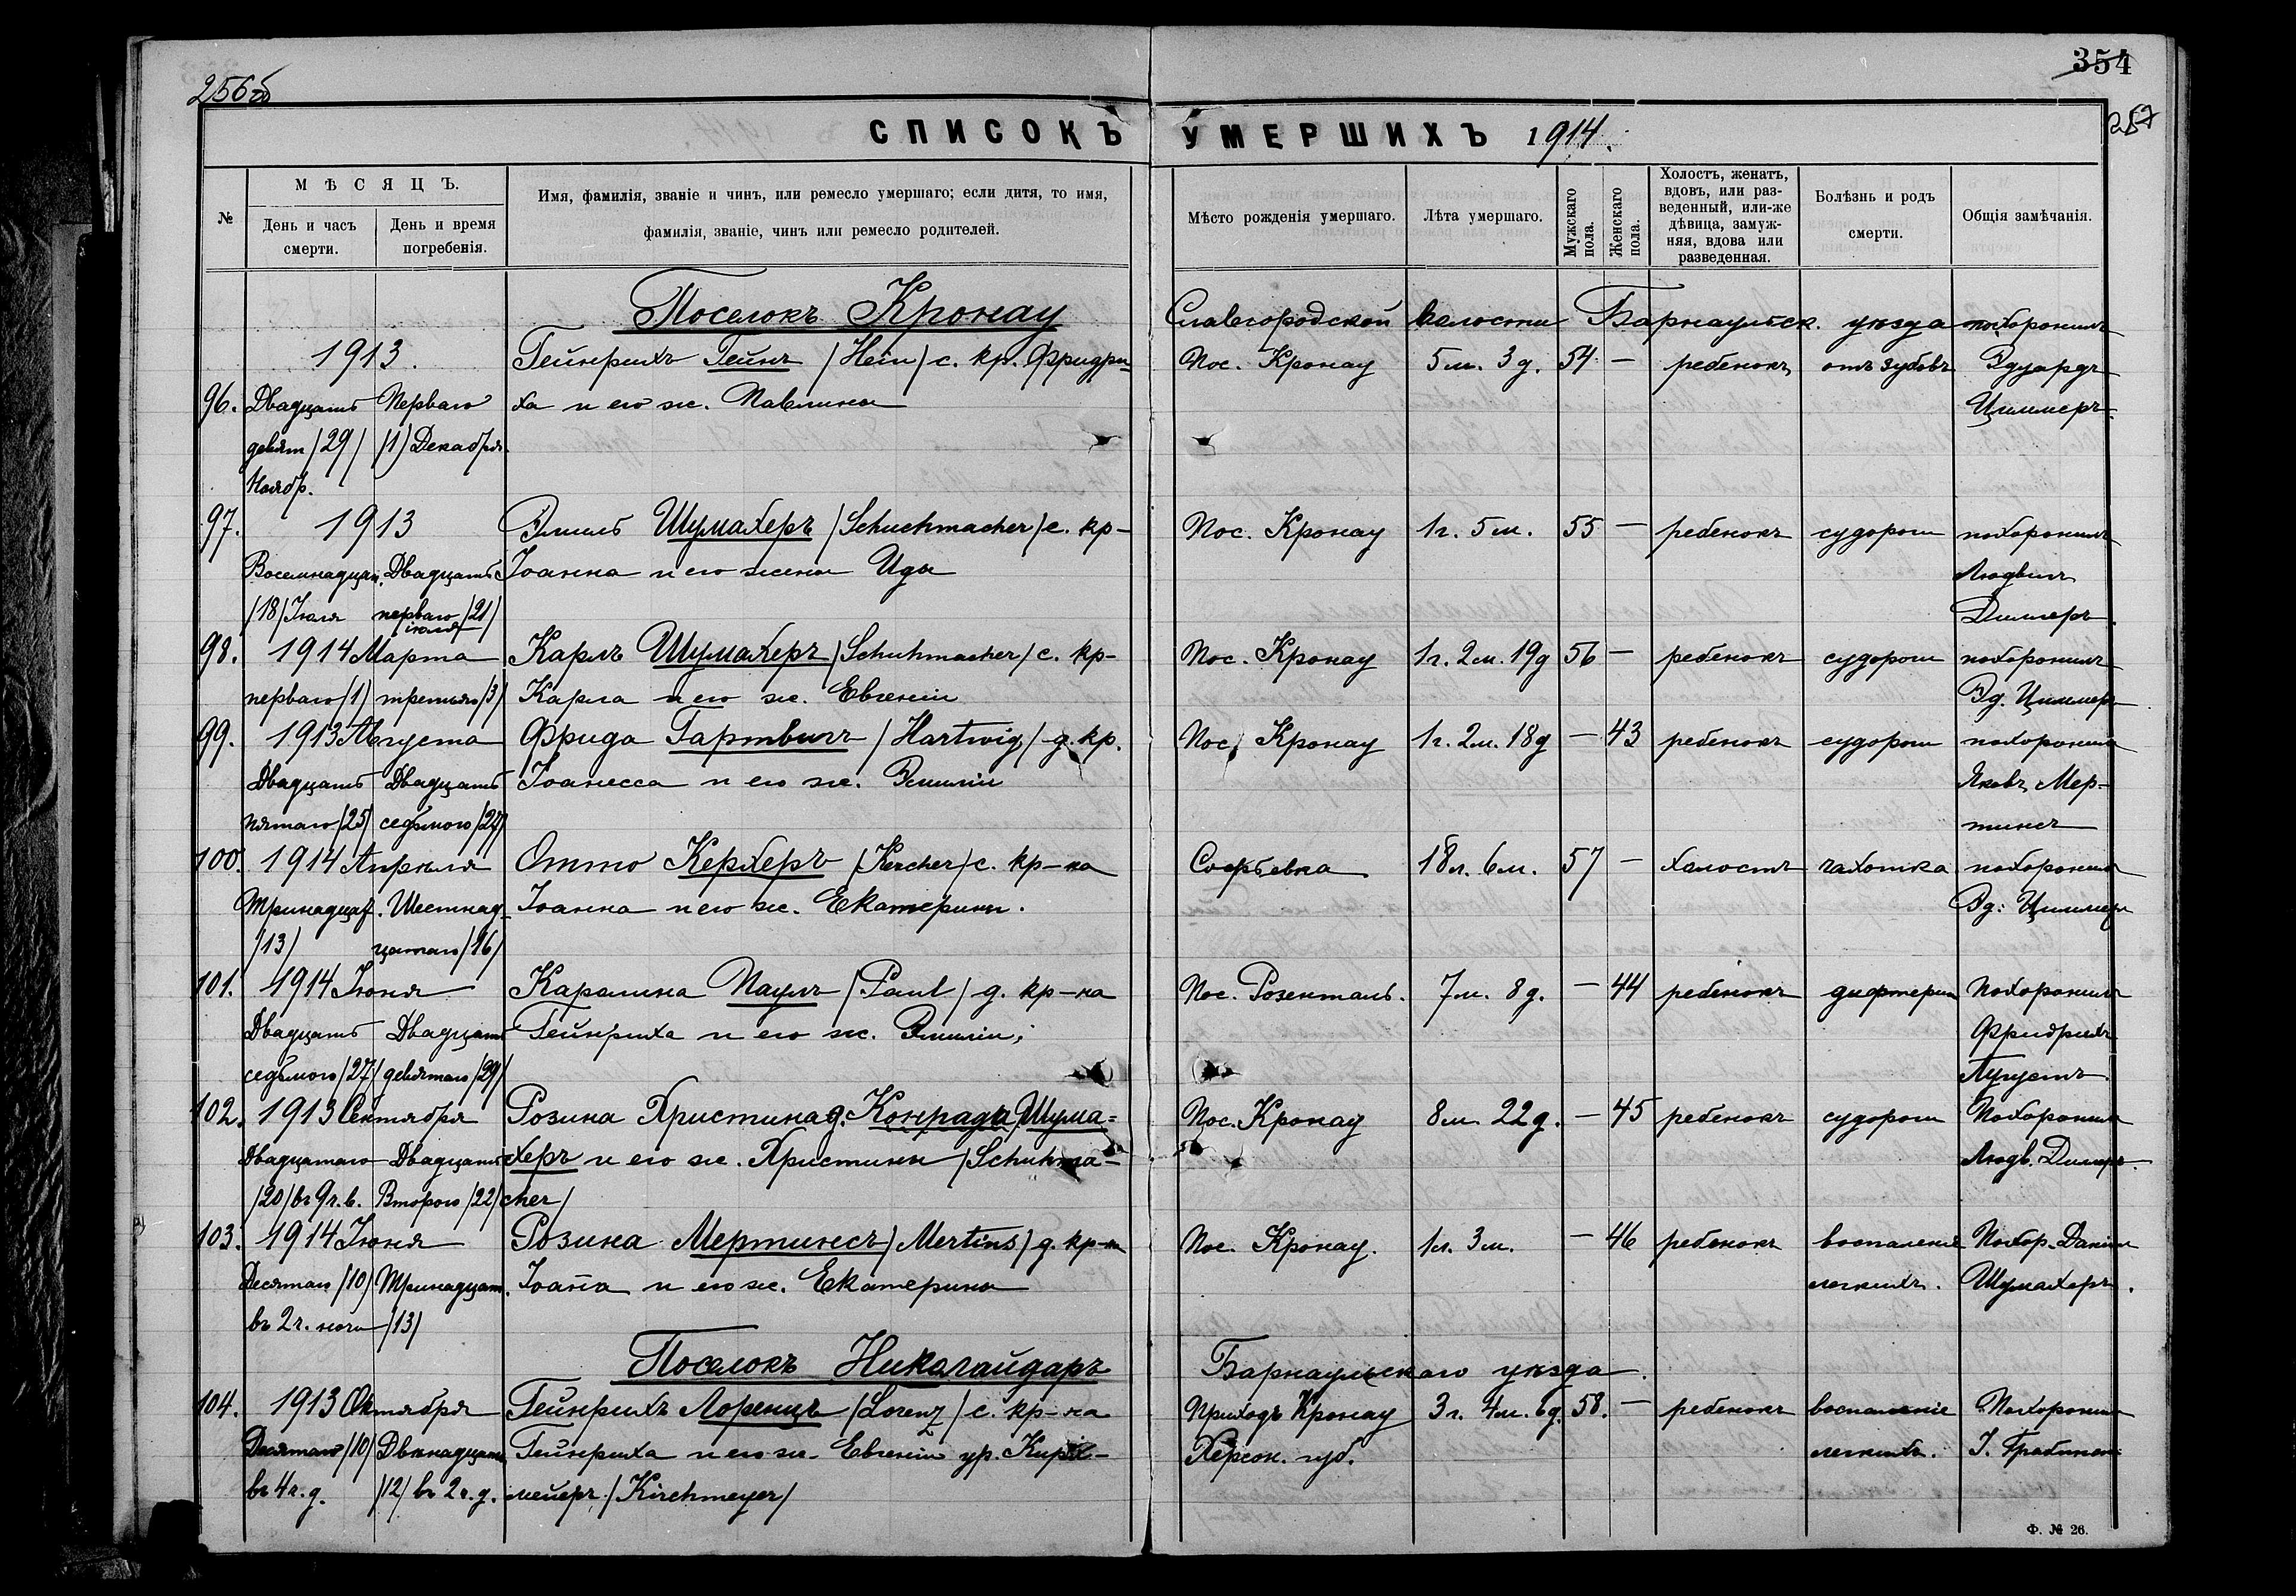 256б
354
257
СПИСОКЪ УМЕРШИХЪ 1914.
№
МѢСЯЦЪ.
День и часъ смерти.
День и время погребенія.
Имя, фамилія, званіе и чинъ, или ремесло умершаго; если дитя, то имя,
фамилія, званіе, чинъ или ремесло родителей.
Мѣсто рожденія умершаго.
Лѣта умершаго.
Мужскаго пола.
Женскаго пола.
Холостъ, женатъ,
вдовъ, или раз-
веденный, или-же
дѣвица, замуж-
няя, вдова или
разведенная.
Болѣзнь и родъ
смерти.
Общія замѣчанія.
Поселокъ Кронау Славгородской волости Барнаульск. уѣзда похоронилъ
1913. Гейнрихъ Гейнъ /Hein/ с. кр. Фридри- Пос. Кронау 5 м. 3 д. 54 — ребенокъ отъ зубовъ Эдуардъ
96. Двадцать Перваго ха и его ж. Павлины Циммеръ.
девят /29/ /1/ Декабря.
Ноябр.
97. 1913 Эмиль Шумахеръ /Schuchmacher/ с. кр- Пос. Кронау 1 г. 5 м. 55 — ребенокъ судороги похоронилъ
Восемнадцат. Двадцать Іоанна и его жены Иды Людвигъ
/18/ Іюля перваго /21/ Димеръ.
іюля
98. 1914 Марта Карлъ Шумахеръ /Schuhmacher/ с. кр- Пос. Кронау 1 г. 2 м. 19 д 56 — ребенокъ судороги похоронилъ
перваго /1/ третьяго /3/ Карла и его ж. Евгеніи Эд. Циммеръ
99. 1913 Августа Фрида Гартвигъ /Hartwig/ д. кр. Пос. Кронау 1 г. 2 м. 18 д — 43 ребенокъ судороги похоронилъ
Двадцать Двадцать Іоанесса и его ж. Эмиліи Яковъ Мер-
пятаго /25/ седьмого /27/ тинсъ
100. 1914 Апрѣля Отто Керхеръ /Kercher/ с. кр-на Софьевка 18 л. 6 м. 57 — холостъ чахотка похоронилъ
Тринадцат. Шестнад- Іоанна и его ж. Екатерины. Эд. Циммеръ
/13/ цатаго /16/
101. 1914 Іюня Каролина Паулъ /Paul/ д. кр-на Пос. Розенталь. 7 м. 8 д. — 44 ребенокъ дифтеріи Похоронилъ
Двадцать Двадцать Гейнриха и его ж. Эмиліи; Фридрихъ
седьмого /27/ девятаго /29/ Аугустъ.
102. 1913 Сентября Розина Христина д. Конрада Шума- Пос. Кронау 8 м. 22 д. — 45 ребенокъ судороги Похоронилъ
Двадцатаго Двадцать херъ и его ж. Христины /Schuhma- Людв. Димеръ.
/20/ въ 9 ч. в. Второго /22/ cher/
103. 1914 Іюня Розина Мертинсъ /Mertins/ д. кр-на Пос. Кронау. 1 г. 3 м. — 46 ребенокъ воспаленіе Похор. Даніил
Десятаго /10/ Тринадцат. Іоана и его ж. Екатерины легкихъ. Шумахеръ.
въ 2 ч. ночи /13/
Поселокъ Николайдаръ Барнаульскаго уѣзда.
104. 1913 Октября Гейнрихъ Лоренцъ /Lorenz/ с. кр-на Приходъ Кронау 3 г. 4 м. 6 д. 58. — ребенокъ воспаленіе Похоронилъ
Десятаго /10/ Двѣнадцат. Гейнриха и его ж. Евгеніи ур. Кирх- Херсон. губ. легкихъ.
въ 4 ч. д. /12/ въ 2 ч. д. мейеръ /Kirchmeyer/
Ф. № 26.